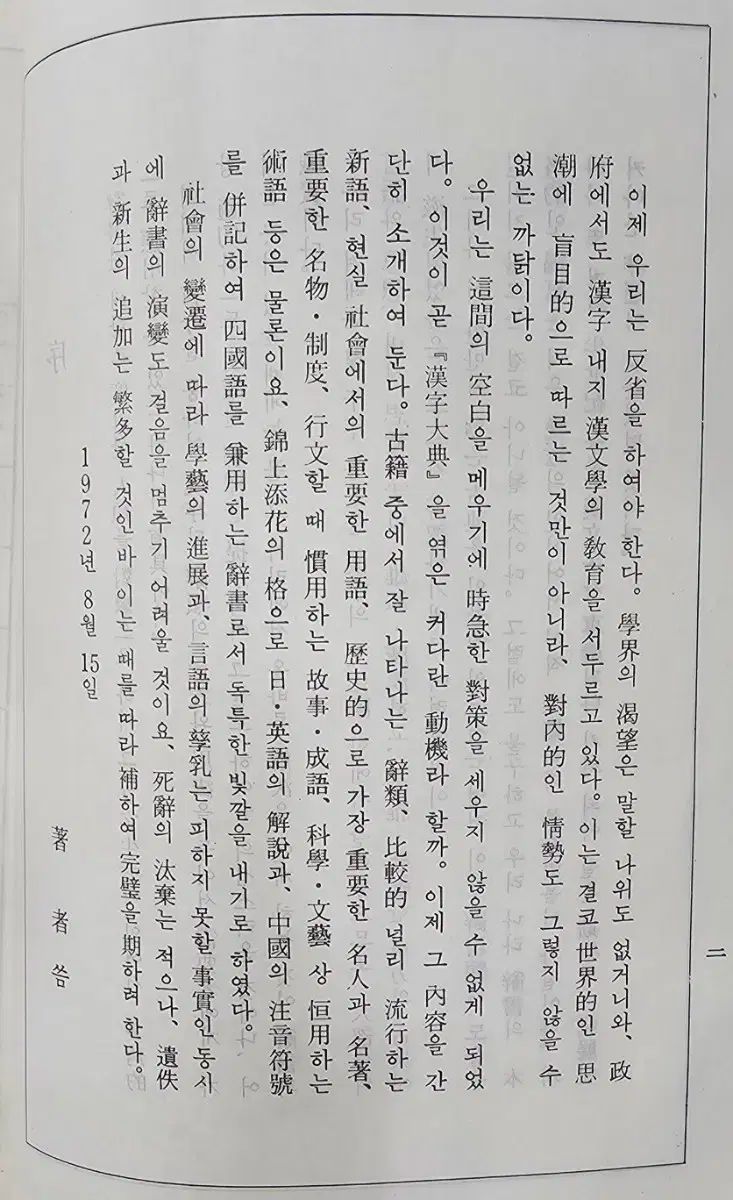 이제 우리는 反省을 하여야 한다. 學界의 渴望은 말할 나위도 없거니와, 政
府에서도 漢字 내지 漢文學의 敎育을 서두르고 있다. 이는 결코 世界的인 思
潮에 盲目的으로 따르는 것만이 아니라, 對內的인 情勢도 그렇지 않을 수
없는 까닭이다.
우리는 這間의 空白을 메우기에 時急한 對策을 세우지 않을 수 없게 되었
다. 이것이 곧 『漢字大典』을 엮은 커다란 動機라 할까. 이제 그 內容을 간
단히 소개하여 둔다. 古籍 중에서 잘 나타나는 辭類, 比較的 널리 流行하는
新語, 현실 社會에서의 重要한 用語, 歷史的으로 가장 重要한 名人과 名著,
重要한 名物·制度, 行文할 때 慣用하는 故事·成語, 科學·文藝 상 恒用하는
術語 등은 물론이요, 錦上添花의 格으로 日·英語의 解說과, 中國의 注音符號
를 併記하여 四國語를 兼用하는 辭書로서 독특한 빛깔을 내기로 하였다.
社會의 變遷에 따라 學藝의 進展과, 言語의 孳乳는 피하지 못할 事實인 동시
에 辭書의 演變도 걸음을 멈추기 어려울 것이요, 死辭의 汰棄는 적으나, 遺佚
과 新生의 追加는 繁多할 것인바 이는 때를 따라 補하여 完璧을 期하려 한다.
1972년 8월 15일
著者 씀
二